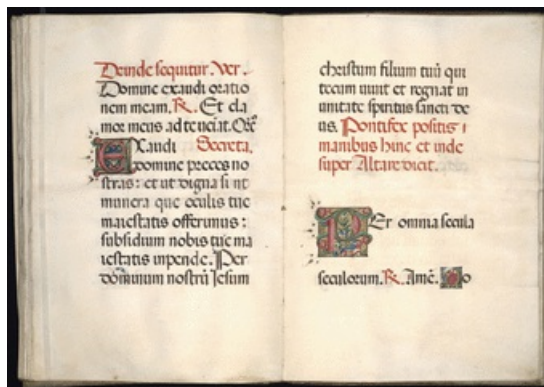 Deinde sequitur. Ver.
Domine exaudi oratio
nem meam. R. Et cla
mor meus ad te ueniat. Ore
Exaudi Secreta.
domine preces no
stras: et ut digna sint
munera que oculis tue
maiestatis offerimus:
subsidium nobis tue ma
iestatis inpende. Per
dominum nostrū Jesum
christum filium tuū qui
tecum uiuit et regnat in
unitate spiritus sancti de
us. Pontifex positis
manibus hinc et inde
super Altare dicit.
Per omnia secula
seculorum. R. Amē. Do